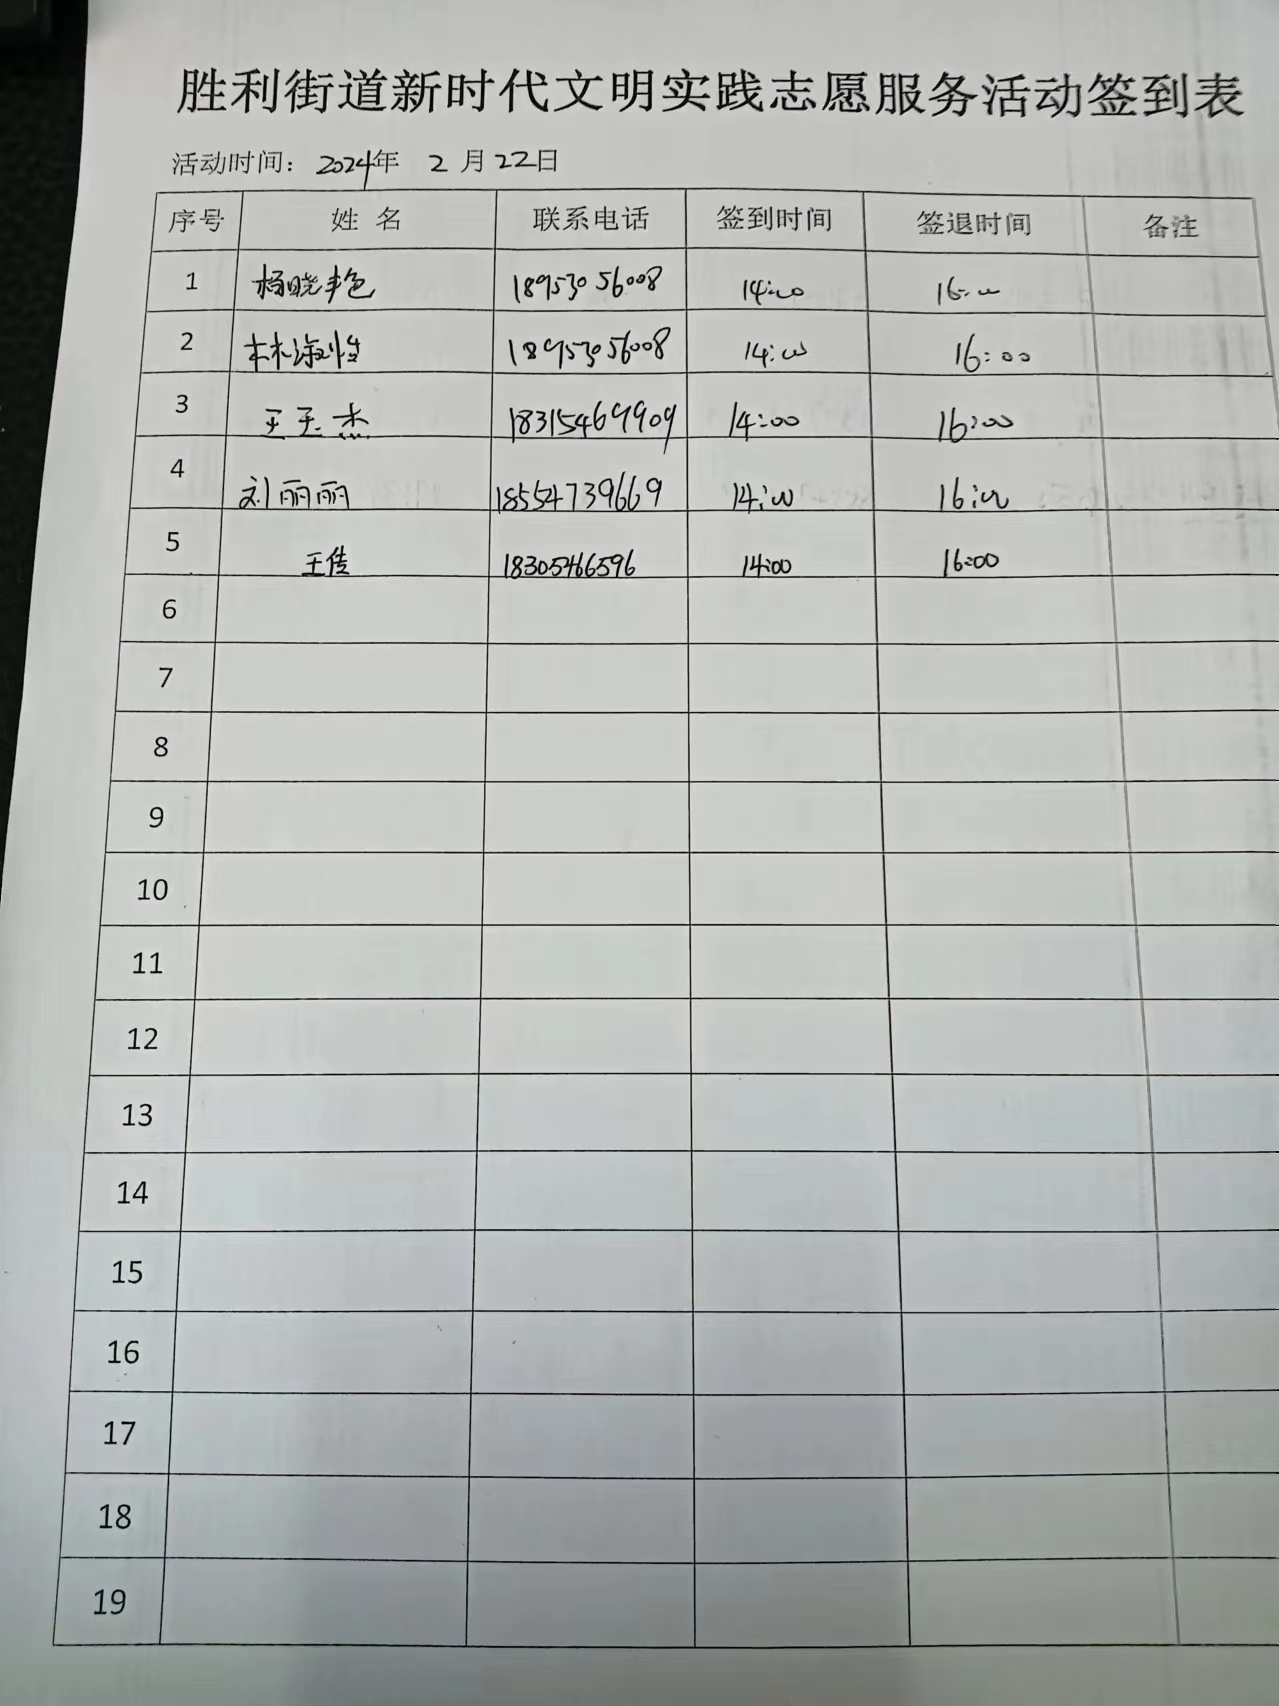 胜利街道新时代文明实践志愿服务活动签到表
活动时间：2024年 2 月 22日
序号 姓 名 联系电话 签到时间 签退时间 备注
1 杨晓艳 18953056008 14:00 16:00
2 林淑惟 18953056008 14:00 16:00
3 王玉杰 18315469909 14:00 16:00
4 刘丽丽 18554739669 14:00 16:00
5 王倩 18305466596 14:00 16:00
6
7
8
9
10
11
12
13
14
15
16
17
18
19